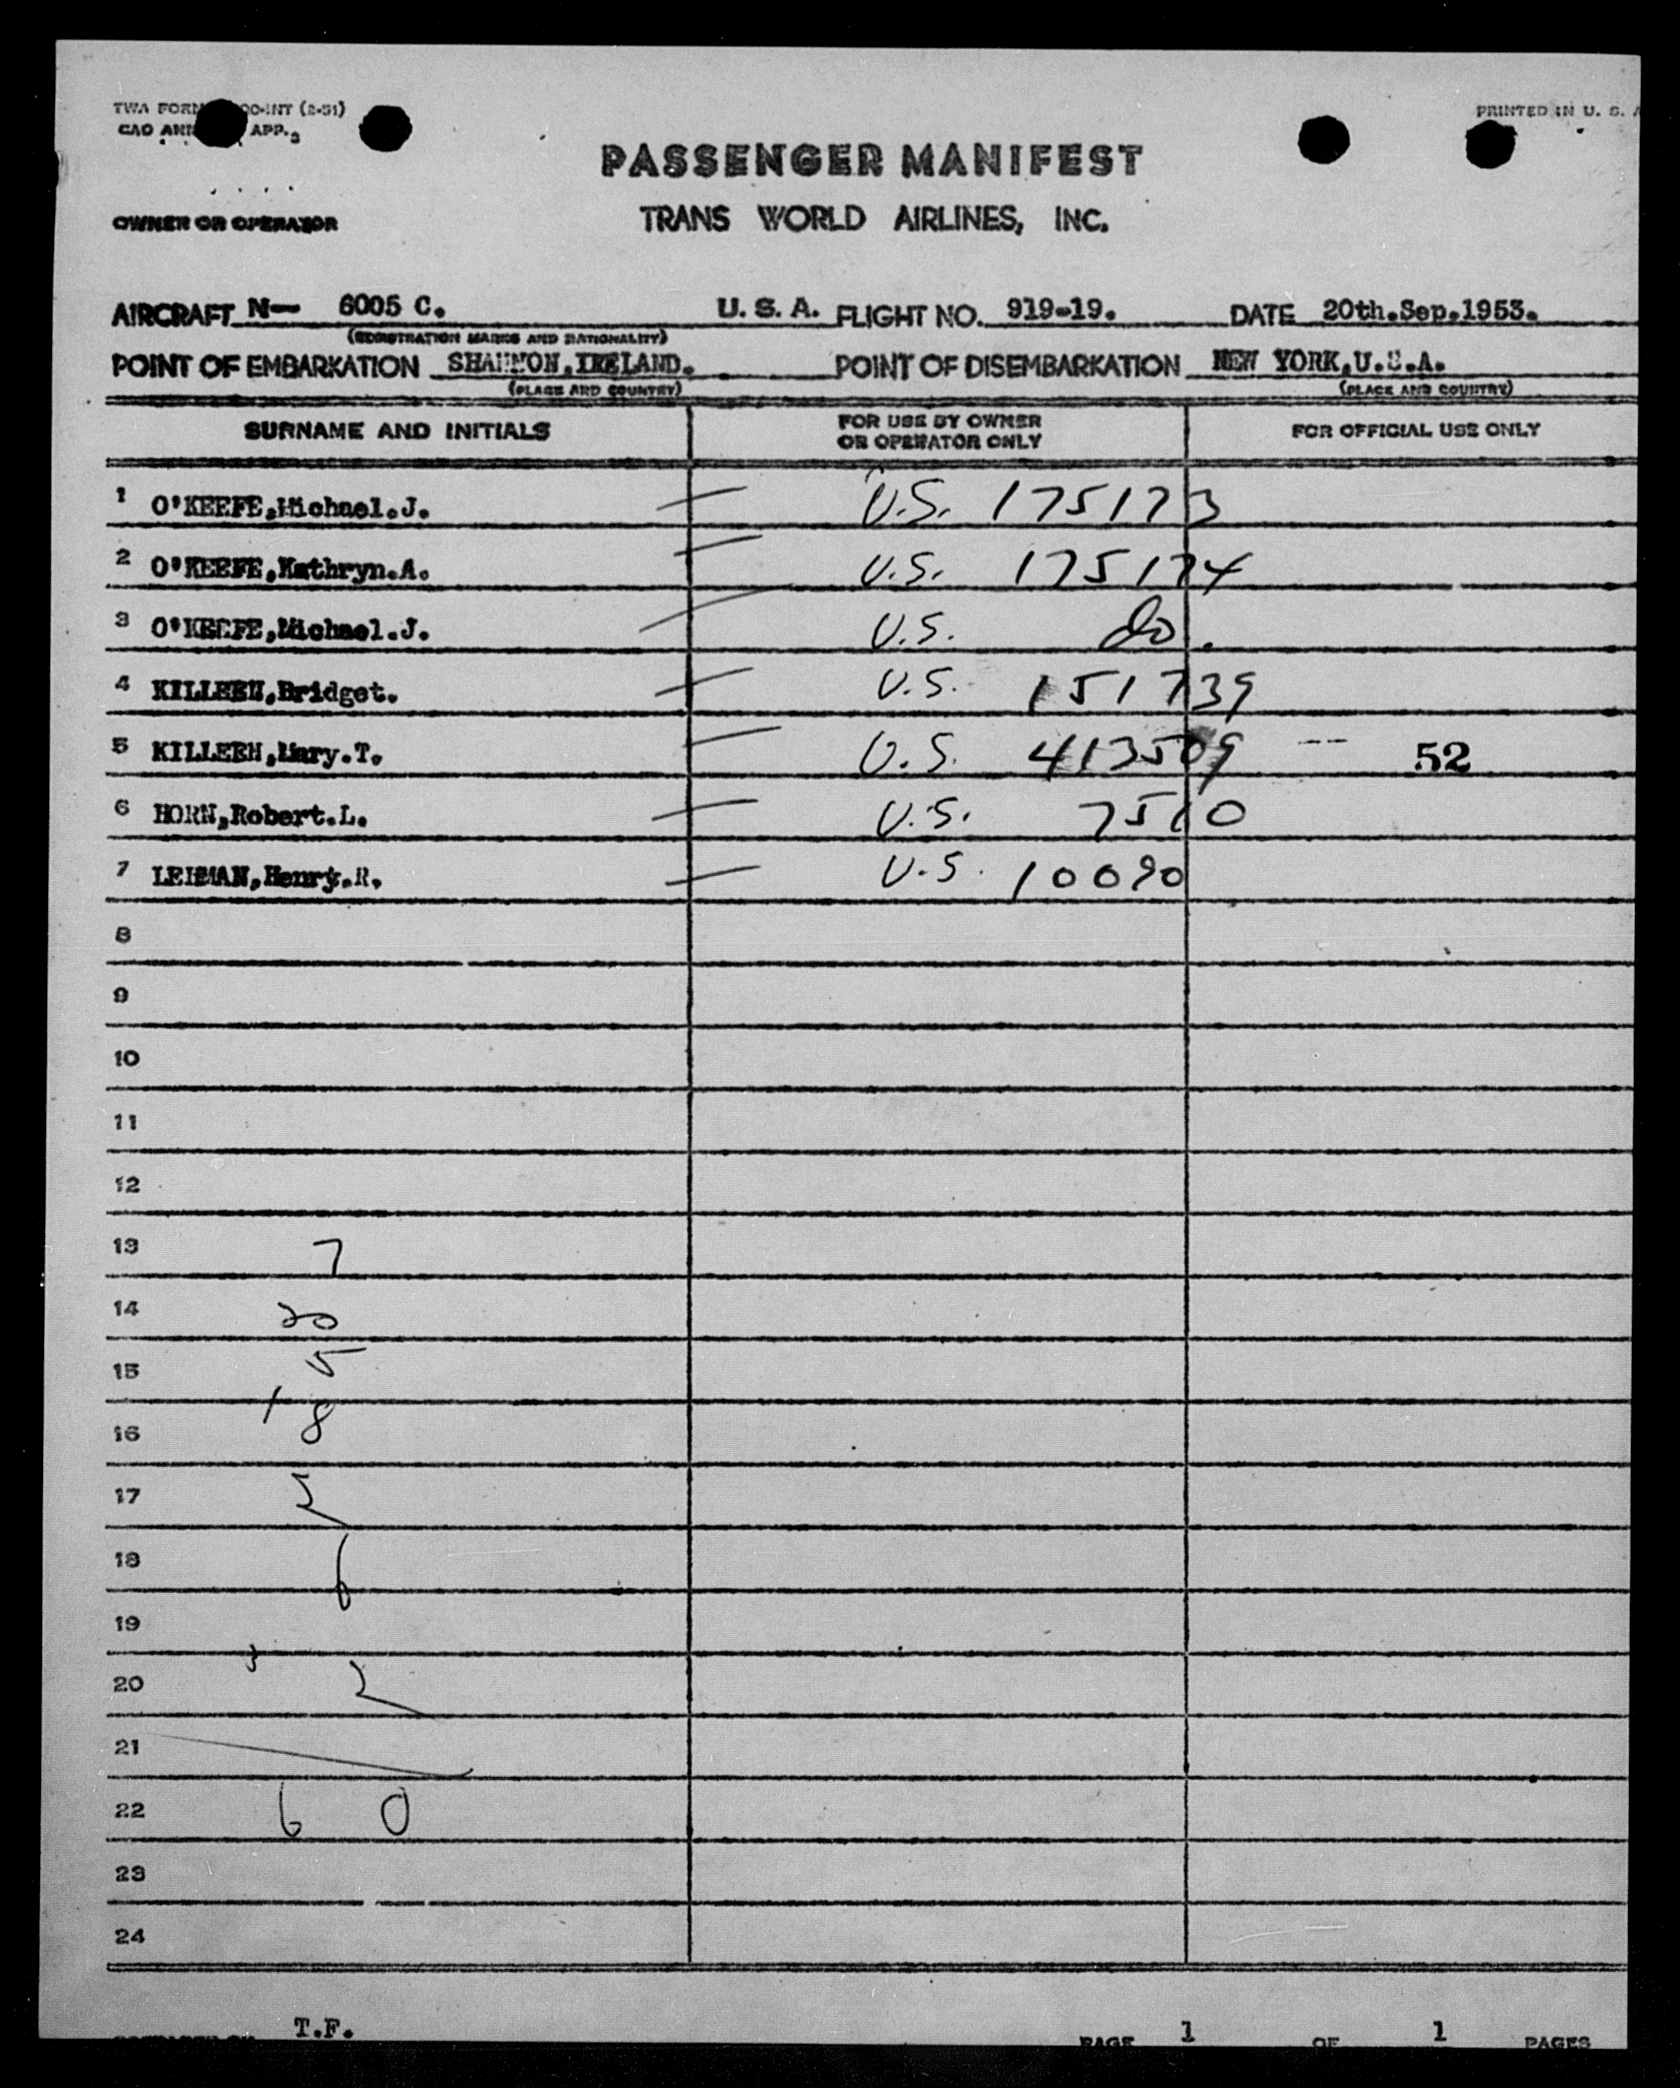 TWA FORM OO-INT (2-51)
PRINTED IN U. S. A
CAO ANN APP. 3
PASSENGER MANIFEST
OWNER OR OPERATOR
TRANS WORLD AIRLINES, INC.
AIRCRAFT N— 6005 C. U. S. A. FLIGHT NO. 919-19. DATE 20th.Sep.1953.
(REGISTRATION MARKS AND NATIONALITY)
POINT OF EMBARKATION SHANNON,IRELAND. POINT OF DISEMBARKATION NEW YORK,U.S.A.
(PLACE AND COUNTRY) (PLACE AND COUNTRY)
SURNAME AND INITIALS FOR USE BY OWNER OR OPERATOR ONLY FOR OFFICIAL USE ONLY
1 O'KEEFE,Michael.J. — U.S. 175173
2 O'KEEFE,Kathryn.A. — U.S. 175174
3 O'KEEFE,Michael.J. — U.S. do.
4 KILLEEN,Bridget. — U.S. 151739
5 KILLEEN,Mary.T. — U.S. 413509 -- 52
6 HORN,Robert.L. — U.S. 7510
7 LEHMAN,Henry.R. — U.S. 10090
8
9
10
11
12
13 7
14 20
15 5
16 18
17 2
18 6
19
20 2
21
22 6 0
23
24
T.F. PAGE 1 OF 1 PAGES